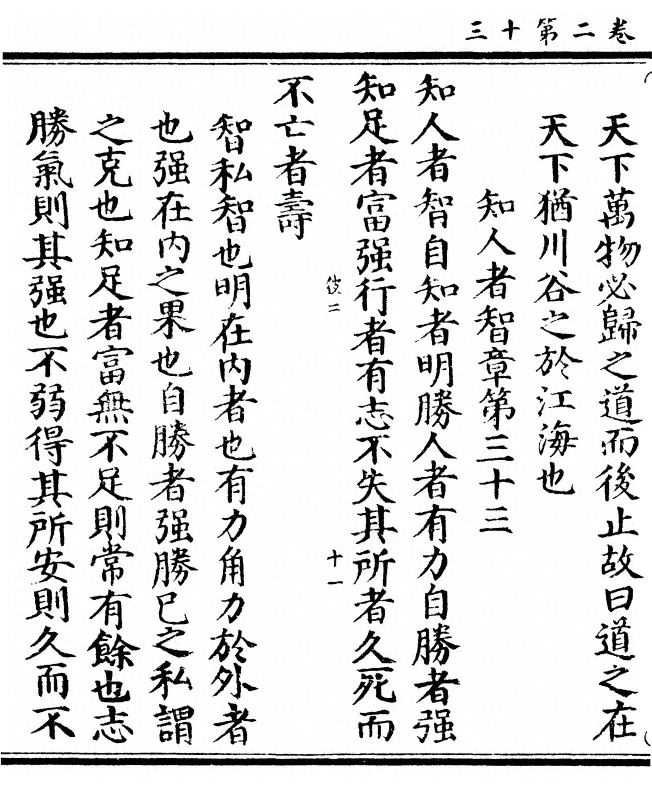 卷二第十三
天下萬物必歸之道而後止故曰道之在
天下猶川谷之於江海也
知人者智章第三十三
知人者智自知者明勝人者有力自勝者强
知足者富强行者有志不失其所者久死而
十一
不亡者壽
智私智也明在内者也有力角力於外者
也强在内之果也自勝者强勝已之私謂
之克也知足者富無不足則常有餘也志
勝氣則其强也不弱得其所安則久而不